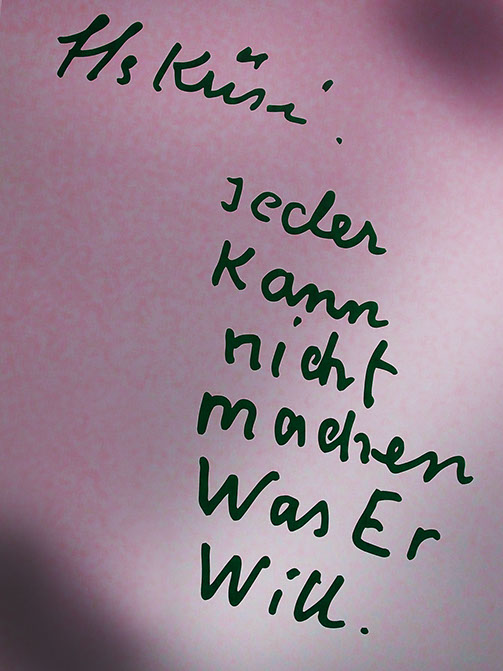 Hs Küsi.
Jeder
Kann
nicht
machen
Was Er
Will.